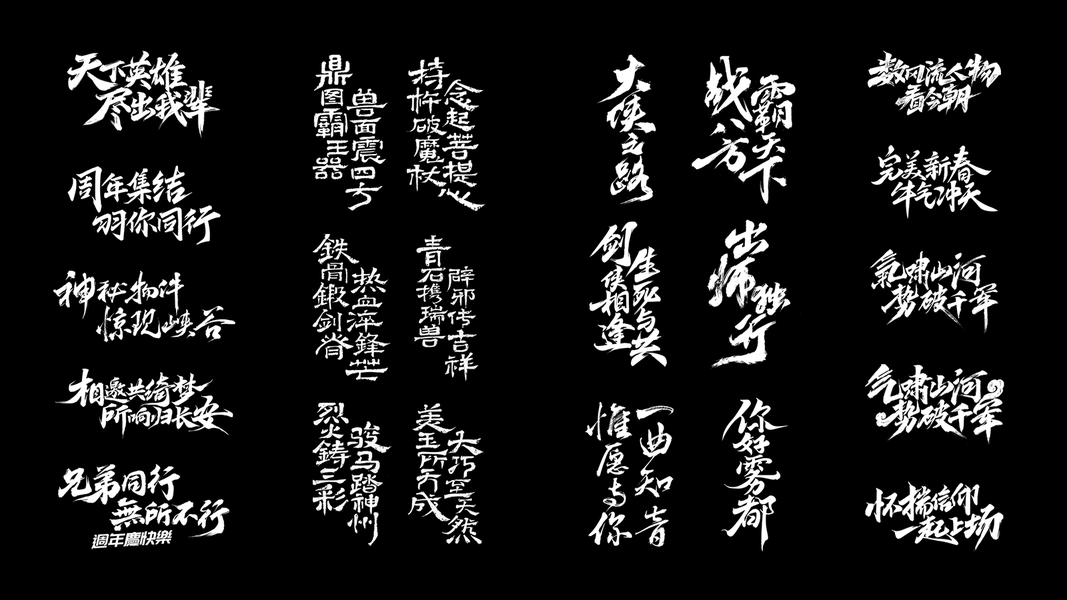 天下英雄
尽出我辈
周年集结
羽你同行
神秘物件
惊现峡谷
相邀共绮梦
所响归长安
兄弟同行
無所不行
週年慶快樂
鼎图霸王器
兽面震四方
持杵破魔杖
念起菩提心
鉄骨鍛剑脊
热血淬鋒芒
青石携瑞兽
辟邪传吉祥
烈火鋳三彩
骏马踏神州
美玉所成
大巧至天然
大侠之路
战八方
霸天下
剑侠相逢
生死与共
出师
独行
一曲知音
惟愿与你
你好雾都
数风流人物
看今朝
完美新春
牛气冲天
氣啸山河
势破千军
气啸山河
势破千军
怀揣信仰
一起上场